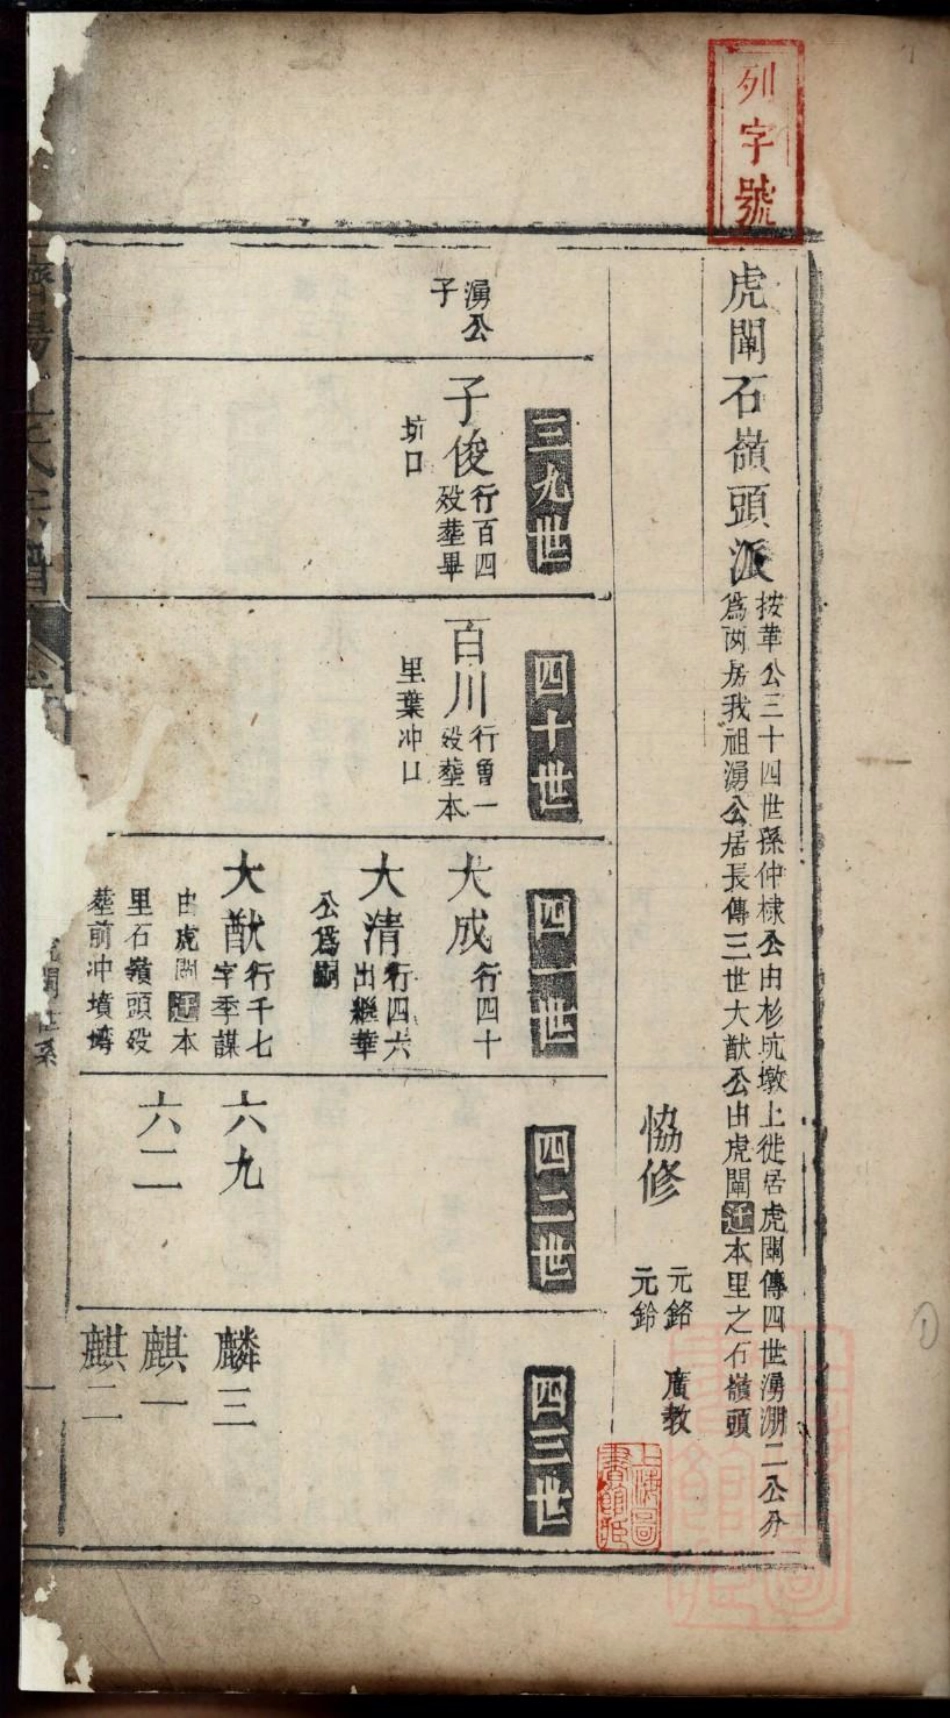 列字號
虎闈石嶺頭派
按華公三十四世孫仲棣公由杉坑墩上徙居虎闈傳四世湧淜二公分
為两房我祖湧公居長傳三世大猷公由虎闈迁本里之石嶺頭
協修
元銘
元鈴
廣教
上海圖
書館臧
三九世
四十世
四一世
四二世
四三世
湧公
子
子俊
行百四
殁塟畢
坑口
百川
行魯一
殁塟本
里葉冲口
大成
行四十
大清
行四六
出繼華
公爲嗣
大猷
行千七
字季謀
由虎闈迁本
里石嶺頭殁
塟前冲墳塝
六九
六二
麟三
麒一
麒二
氏宗譜
系
一